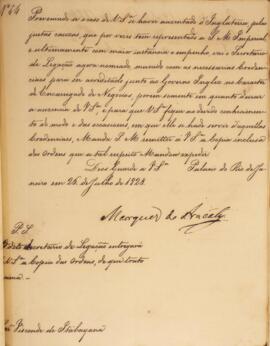 Nº 44
Prevenindo o caso de V. Sª se haver ausentado d'Inglaterra, pelas
justas causas, que por vezes tem representado a S. M. Imperial,
e ultimamente com mais instancia e empenho vai o Secretario
de Legação agora nomeado munido com as necessarias Creden-
ciaes para ser acreditado junto ao Governo Inglez no caracter
de Encarregado de Negocios, porem somente em quanto durar
a ausencia de V. Sª e para que V. Sª fique ao conhecimen-
to do modo e das occasioens, em que elle se hade servir d'aquellas
Credenciaes, Manda S. M. remetter a V. Sª a Copia inclusa
das ordens que a tal respeito Mandou expedir.
Deos Guarde a V. Sª Palacio do Rio de Ja-
neiro em 26 de Julho de 1828.
Marquez de Aracaty
P. S.
Secretario de Legação entregará
V. Sª a Copia das ordens, de que trata
Visconde de Itabayana